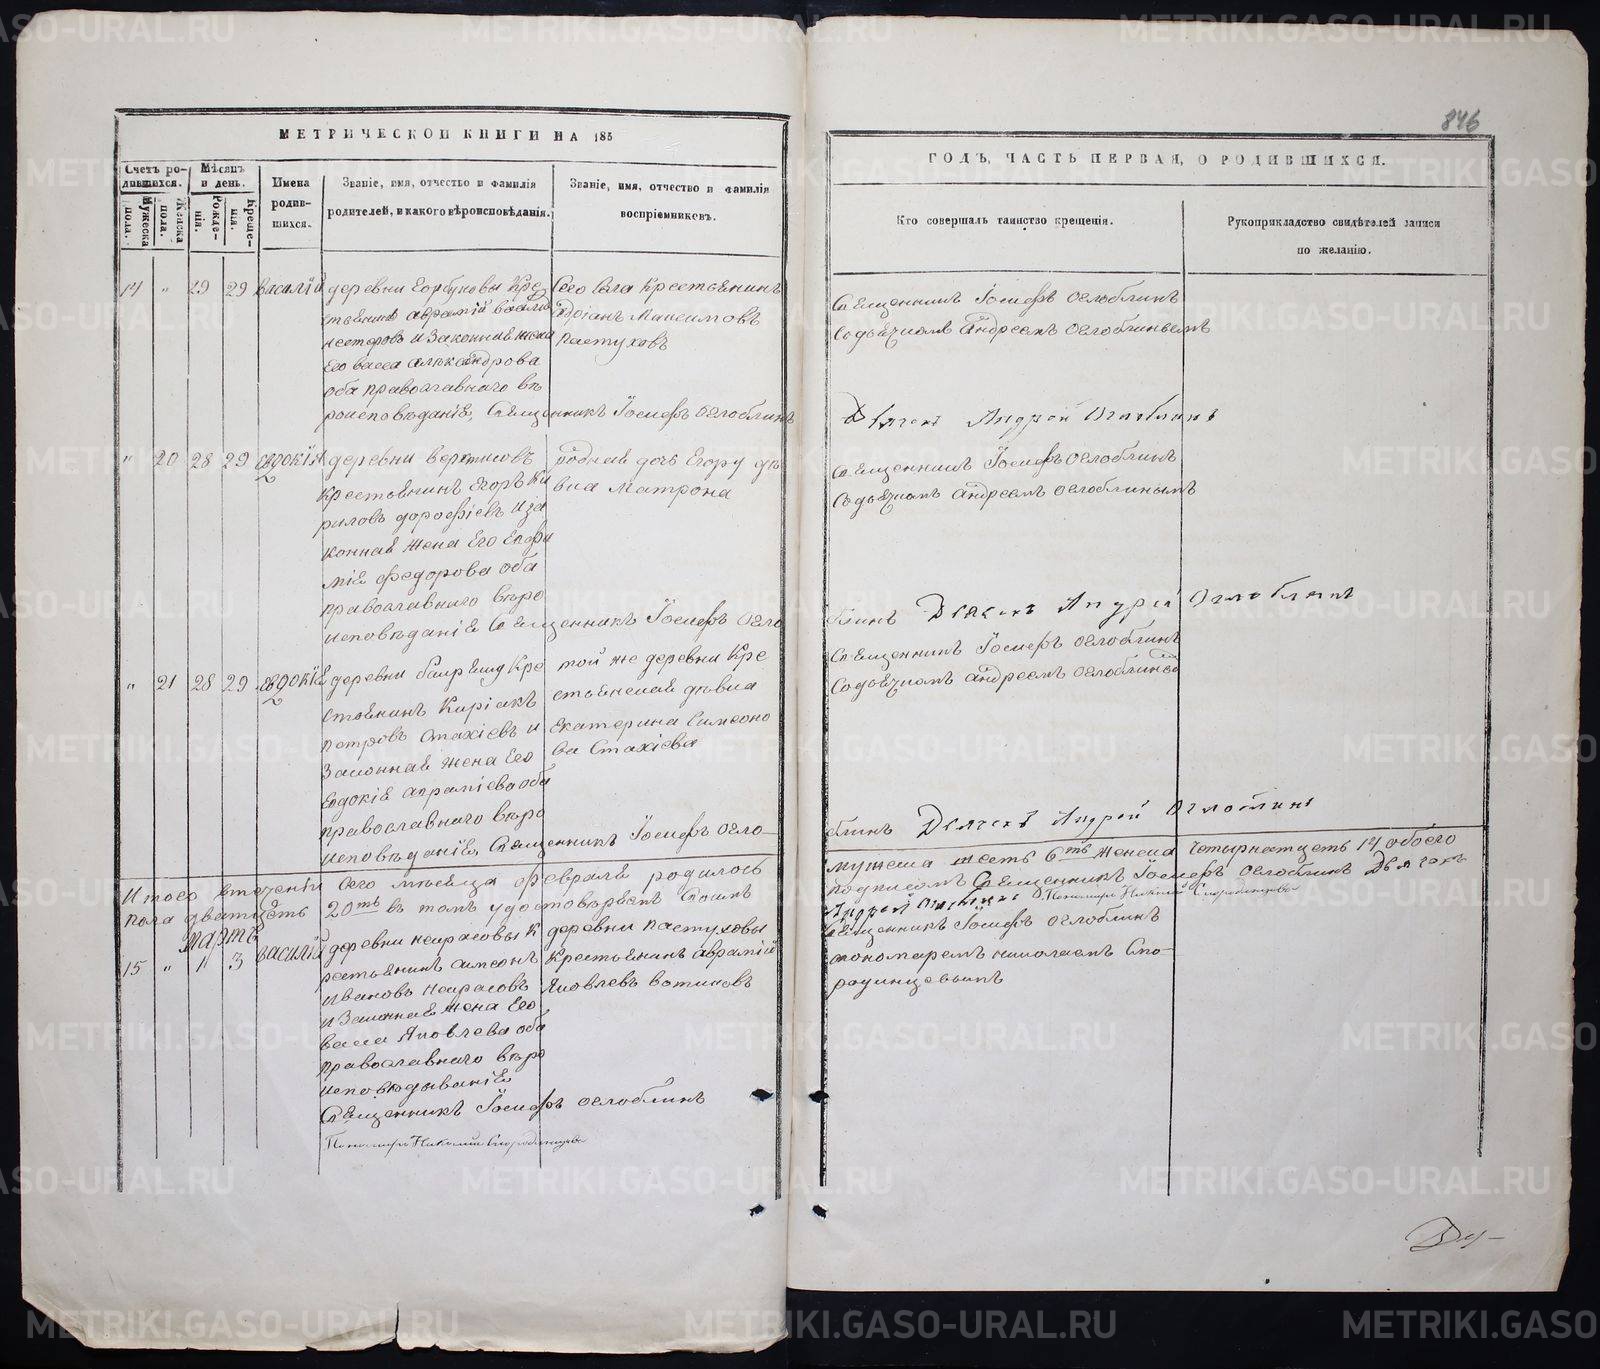 846
МЕТРИЧЕСКОЙ КНИГИ НА 185
ГОДЪ, ЧАСТЬ ПЕРВАЯ, О РОДИВШИХСЯ.
Счетъ родившихся.
Мужеска пола.
Женска пола.
Мѣсяцъ и день.
Рожденія.
Крещенія.
Имена родившихся.
Званіе, имя, отчество и фамилія
родителей, и какого вѣроисповѣданія.
Званіе, имя, отчество и фамилія
воспріемниковъ.
Кто совершалъ таинство крещенія.
Рукоприкладство свидѣтелей записи
по желанію.
14 " 29 29 Василій
деревни Горбуновы Кре
стьянинъ Аврамій Василь
Нестеровъ и Законная жена
Его Васса Александрова
оба православнаго вѣ
роисповѣданія, Священникъ Іосифъ Оглоблинъ
Сего села Крестьянинъ
Адріанъ Максимовъ
Пастуховъ
Священникъ Іосифъ Оглоблинъ
Содьячкомъ Андреемъ Оглоблинымъ
Дьячекъ Андрей Оглоблинъ
" 20 28 29 Евдокія
2
деревни
Крестьянинъ Егоръ Ки
риловъ Дорофѣевъ и за
конная жена Его Евфи
мія Федорова оба
православнаго вѣро
исповѣданія Священникъ Іосифъ Огло
родная дочь Егору дѣ
вица Матрона
Священникъ Іосифъ Оглоблинъ
Содьячкомъ Андреемъ Оглоблинымъ
блинъ Дьячекъ Андрей Оглоблинъ
" 21 28 29 Евдокія
2
деревни Кре
стьянинъ Киріакъ
Петровъ Стахіевъ и
Законная жена Его
Евдокія оба
православнаго вѣро
исповѣданія, Священникъ Іосифъ Огло-
той же деревни Кре
стьянская дѣвица
Екатерина Симеоно
ва Стахіева
Священникъ Іосифъ Оглоблинъ
Содьячкомъ Андреемъ Оглоблинымъ
блинъ Дьячекъ Андрей Оглоблинъ
Итого втеченіи Сего мѣсяца Февраля родилось
мужеска шесть 6ть Женска Четырнатцеть 14 обоего
пола дватцеть 20ть въ томъ удостовѣряемъ Своимъ
подписомъ Священникъ Іосифъ Оглоблинъ Дьячекъ
Андрей Оглоблинъ Пономарь Николай Скородинцевъ
Мартъ
15 " 1 3 Василій
деревни Некрасовы К
рестьянинъ Симеонъ
Ивановъ Некрасовъ
и Законная жена Его
Васса Яковлева оба
православнаго вѣро
исповѣдыванія
Священникъ Іосифъ Оглоблинъ
Пономарь Николай Скородинцевъ
деревни Пастуховы
Крестьянинъ Аврамій
Яковлевъ Вотиновъ
Священникъ Іосифъ Оглоблинъ
пономаремъ николаемъ Ско-
родинцевымъ
METRIKI.GASO-URAL.RU